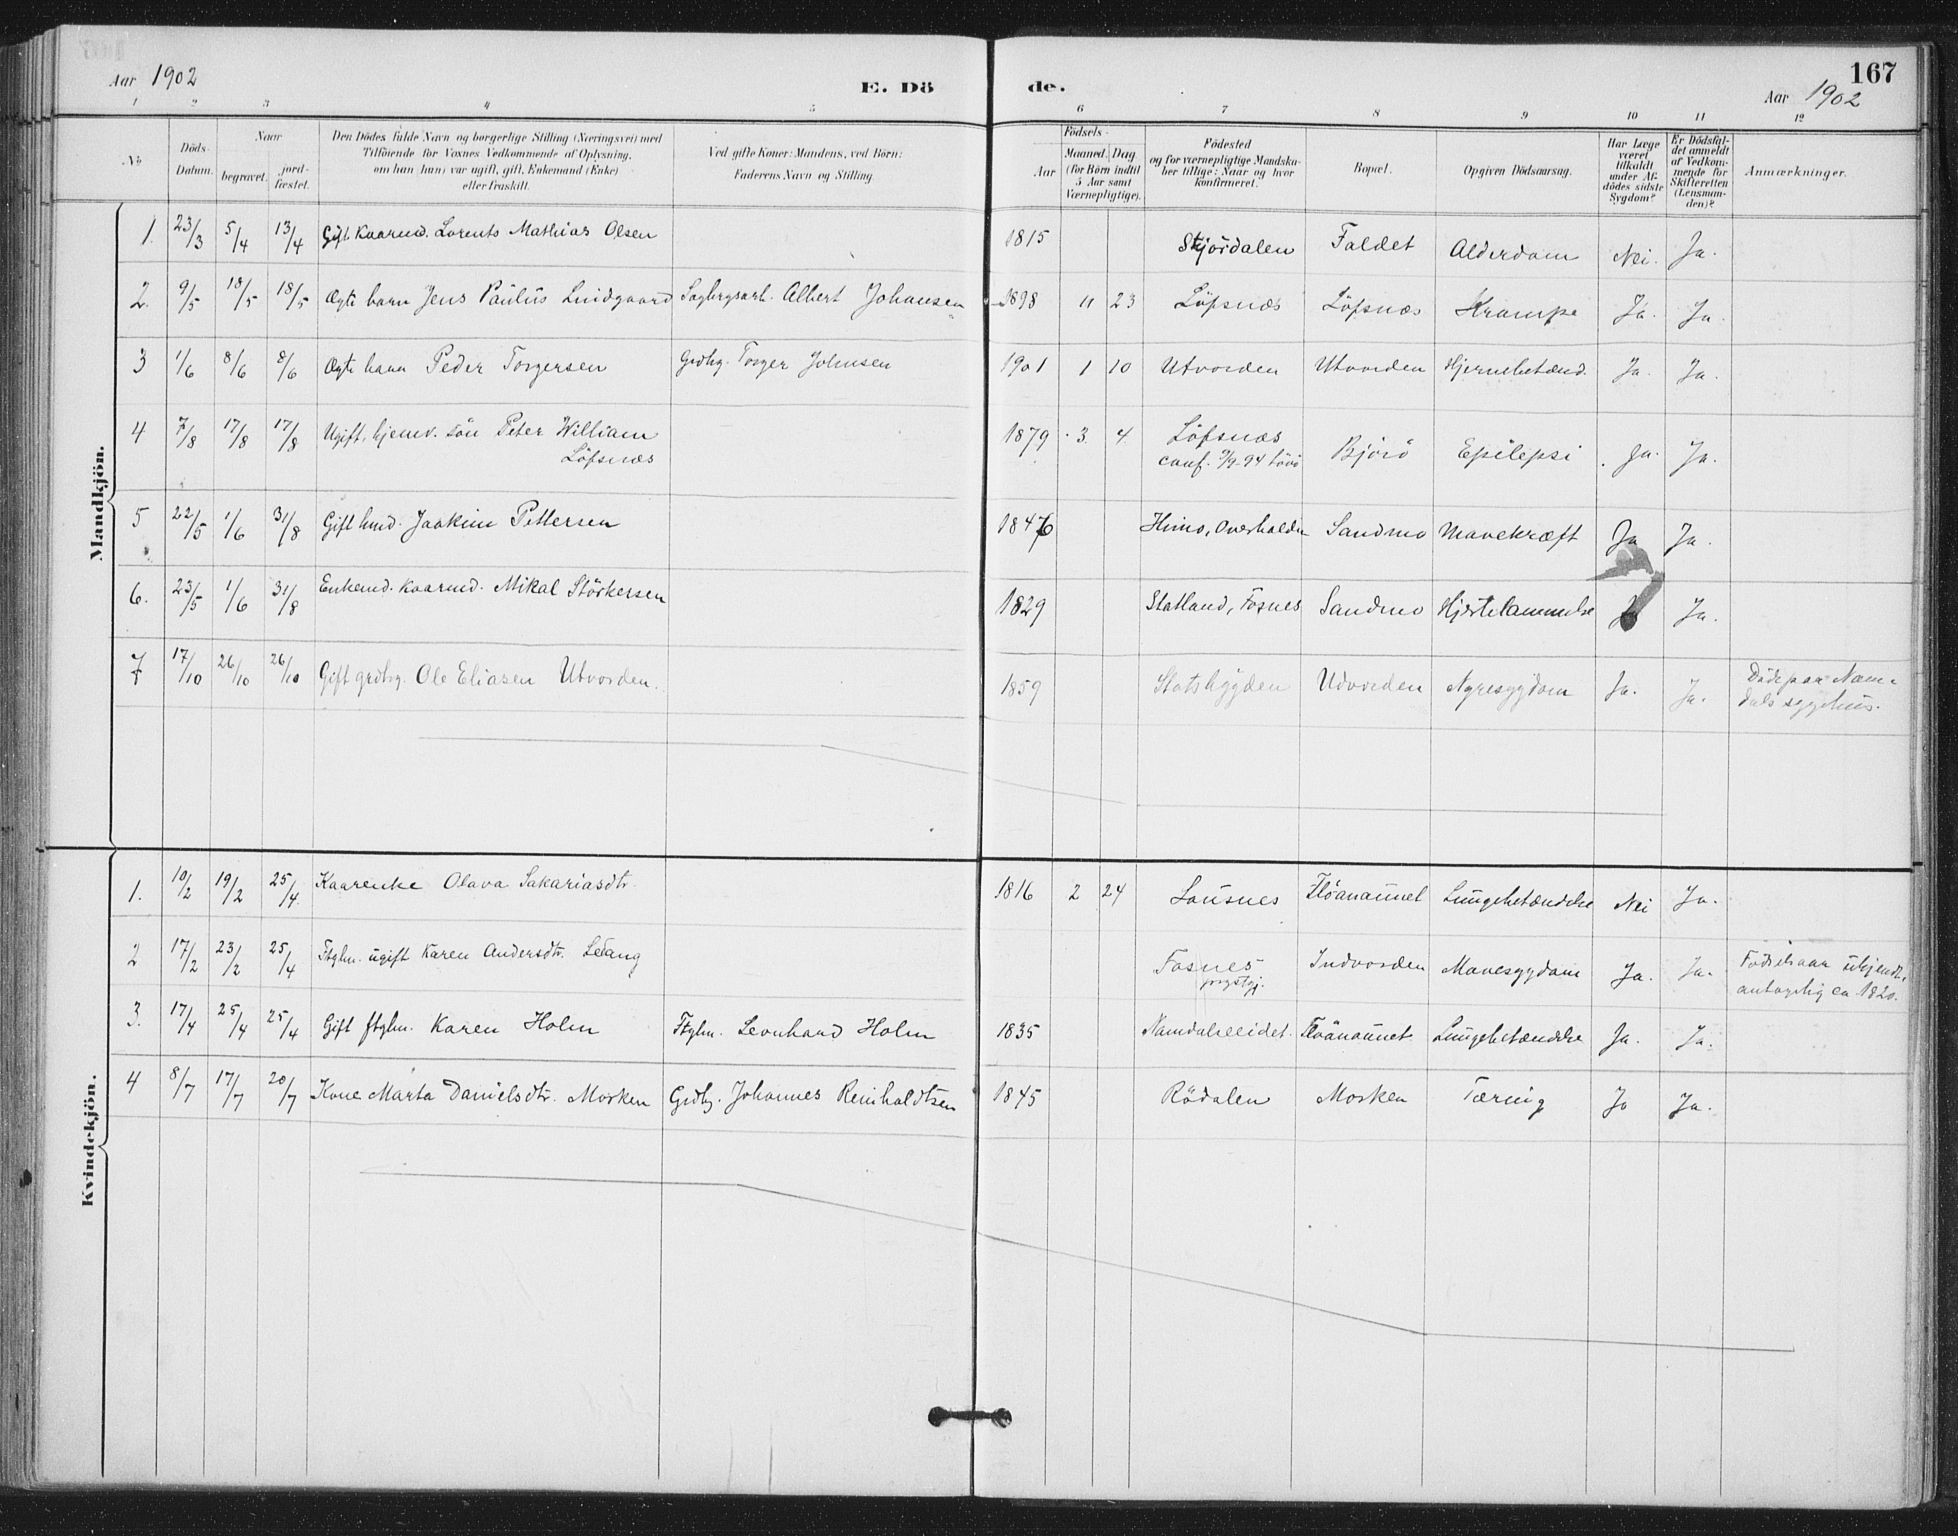 Aar 1902
E. Dö
de.
167
Aar 1902
1 2 3 4 5 6 7 8 9 10 11 12
No
Döds-Datum.
Naar
begravet.
jord-fæstet.
Den Dödes fulde Navn og borgerlige Stilling (Næringsvei) med
Tilföiende for Voxnes Vedkommende af Oplysning,
om han (hun) var ugift, gift, Enkemand (Enke)
eller fraskilt.
Ved gifte Koner: Mandens, ved Börn:
Faderens Navn og Stilling
Födsels-
Aar
Maaned. Dag
(for Börn indtil
5 Aar samt
Værnepligtige).
Födested
og for værnepligtige Mandska-
ber tillige: Naar og hvor
konfirmeret.
Bopæl.
Opgiven Dödsaarsag.
Har Læge
været
tilkaldt
under Af-
dödes sidste
Sygdom?
Er Dödsfal-
det anmeldt
af Vedkom-
mende for
Skifteretten
(Lensman-
den)?
Anmærkninger.
Mandkjön.
1. 23/3 5/4 13/4 Gift Kaarmd. Lorents Mathias Olsen 1815 Stjördalen Faldet Alderdom Nei. Ja.
2. 9/5 18/5 18/5 Ægte barn Jens Paulus Lindgaard Sagbrgsarb. Albert Johansen 1898 11 23 Löfsnæs Löfsnæs Krampe Ja. Ja.
3 1/6 8/6 8/6 Ægte barn Peder Torgersen Grdbg. Torger Johnsen 1901 1 10 Utvorden Utvorden Hjernebetænd. Ja. Ja.
4 7/8 17/8 17/8 Ugift, hjemv. sön Peter William
Löfsnæs 1879 3. 4. Löfsnæs
conf. 9/9-94 Bjorö Epilepsi Ja. Ja.
5 22/5 1/6 31/8 Gift Jaakim Pettersen 1846 Himo, Overhalden Sandmo Mavekræft Ja Ja.
6. 23/5 1/6 31/8 Enkemd. Kaarmd. Mikal Störkersen 1829 Statland, Fosnes Sandmo Hjertelammelse Ja Ja.
7 17/10 26/10 26/10 Gift grdbrg. Ole Eliasen Utvorden. 1859 Statsbygden Udvorden Nyresygdom Ja. Ja. Döde paa Nam-
dals sygehus.
Kvindekjön.
1. 10/2 19/2 25/4 Kaarenke Olava Sakariasdtr. 1816 2 24 Lausnes Flöanaunet Lungebetændelse Nei Ja.
2 17/2 23/2 25/4 ugift Karen Andersdtr. Setang Fosnes
prgstgj. Indvorden Mavesygdom Ja. Ja. Födselsaar ubjendt,
antagelig ca 1820.
3. 17/4 25/4 25/4 Gift ftglm. Karen Holm Ftglm. Leonhard Holm 1835 Namdalseidet. Flöanaunet Lungebetændelse Ja. Ja.
4 8/7 17/7 20/7 Kone Marta Danielsdtr. Morken Grdbg. Johannes Reinholdtsen 1845 Rödalen Morken Tæring Ja Ja.